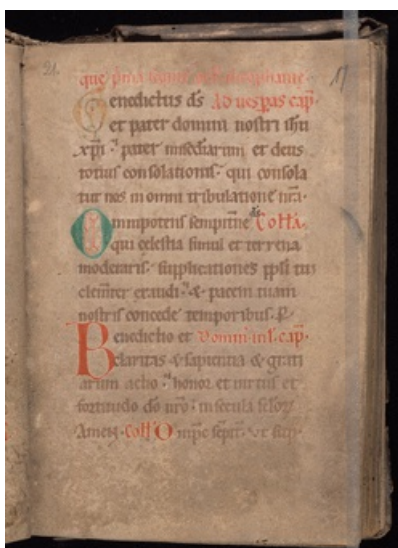 21. 17
que
enedictus ds Ad uesp̄as cap̄.
et pater domini nostri ihu
xp̄i pater mis̄cdiarum et deus
totius consolationis. qui consola
tur nos in omni tribulatione nr̄a.
Omnipotens sempit̄ne ds̄ Coll̄a.
qui celestia simul et terrena
moderaris. supplicationes pp̄li tui
clem̄ter exaudi. & pacem tuam
nostris concede temporibus. P̄.
Benedictio et cap̄.
claritas & sapientia & grati
arum actio. honor et uirtus et
fortitudo dō nr̄o. in secula sc̄lorꝫ
Amen. Coll̄ Omp̄c sep̄it̄. ut sup̄.